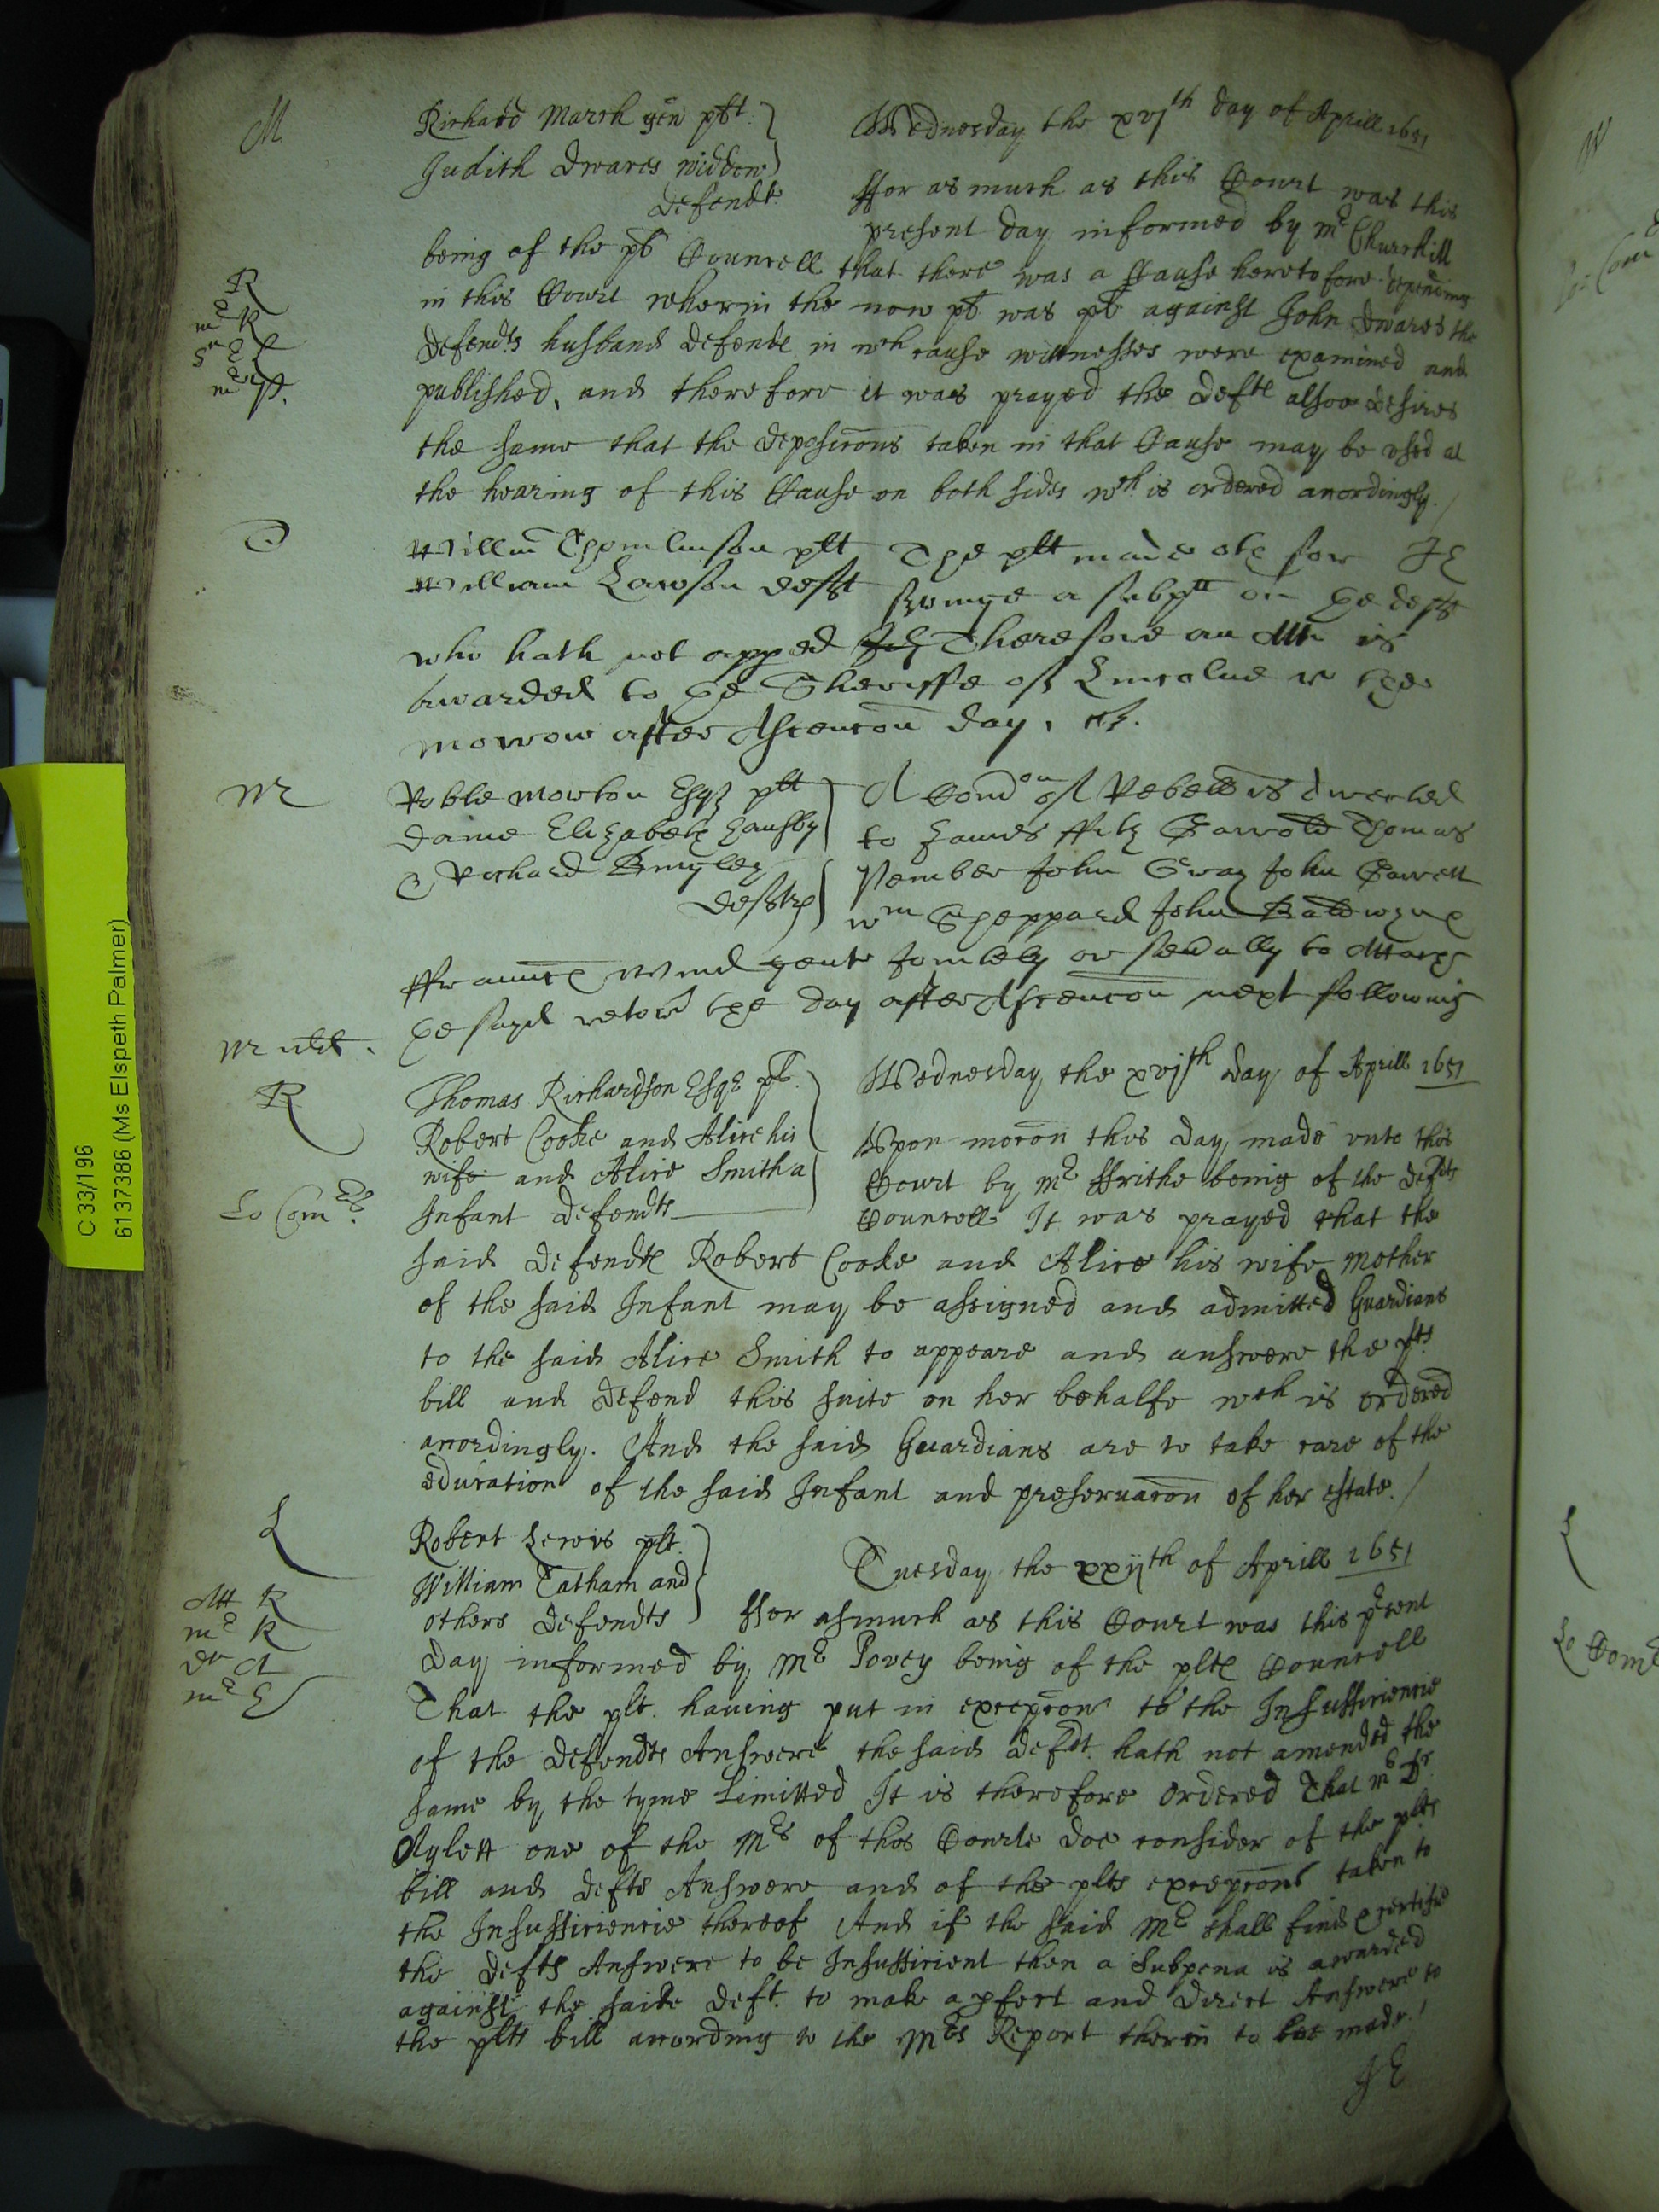 M
Richard March gen plt.
Judith Dwares widdow
Defendt.
Wednesday the xvjth day of Aprill 1651
ffor as much as this Court was this
present day informed by Mr Churchill
being of the plts Councell that there was a Cause heretofore depending
in this Court wherin the now plt was plt against John Dwares the
Defendts husband Defendt in wch cause wittnesses were examined and
published, and therefore it was prayed the Deft alsoe desires
the same that the deposicons taken in that Cause may be used at
the hearing of this Cause on both sides wch is ordered accordingly.
R
mr R
mr
T
Willm Thomlinson plt
William Lawson deft
The plt made oth for
seruinge a subp on the deft
who hath not apped Therefore an Att is
awarded to the Sheriffe of Lincolne re the
morrow after Ascencon day.
Mr
Roble Morton Esq plt
Dame Elizabeth
& Richard
Defts
A Comon of Rebell is directed
to James ffitz Thomas
Pember John Gray John
Wm Sheppard John
ffraunc gents Joyntely or seually to Attach
the sayd retorn the day after Ascencon next following
Mr
R
Lo Comrs
Thomas Richardson Esqr plt.
Robert Cooke and Alice his
wife and Alice Smith a
Infant Defendts
Wednesday the xvjth day of Aprill 1651
Upon mocon this day made unto this
Court by Mr ffrithe being of the Defts
Councell It was prayed that the
said Defendts Robert Cooke and Alice his wife mother
of the said Infant may be assigned and admitted Guardians
to the said Alice Smith to appeare and answere the plts
bill and defend this suite on her behalfe wch is ordered
accordingly. And the said Guardians are to take care of the
education of the said Infant and preseruacon of her estate.
L
Att R
mr R
Dr A
mr
Robert Lewis plt.
William Tatham and
others Defendts
Tuesday the xxijth of Aprill 1651
ffor asmuch as this Court was this present
day informed by Mr Povey being of the plts Councell
That the plt. hauing put in excepcons to the Insufficiencie
of the Defendts Answere the said Defdt. hath not amended the
same by the tyme Limitted It is therefore ordered That mr Dr.
Aylett one of the Mrs of this Courte doe consider of the plts
bill and defts Answere and of the plts excepcons taken to
the Insufficiencie thereof And if the said Mr shall find & certifie
the Defts Answere to be Insufficient then a Subpena is awarded
against the saide Deft. to make a pfect and direct Answere to
the plts bill according to the Mrs Report therein to bee made.